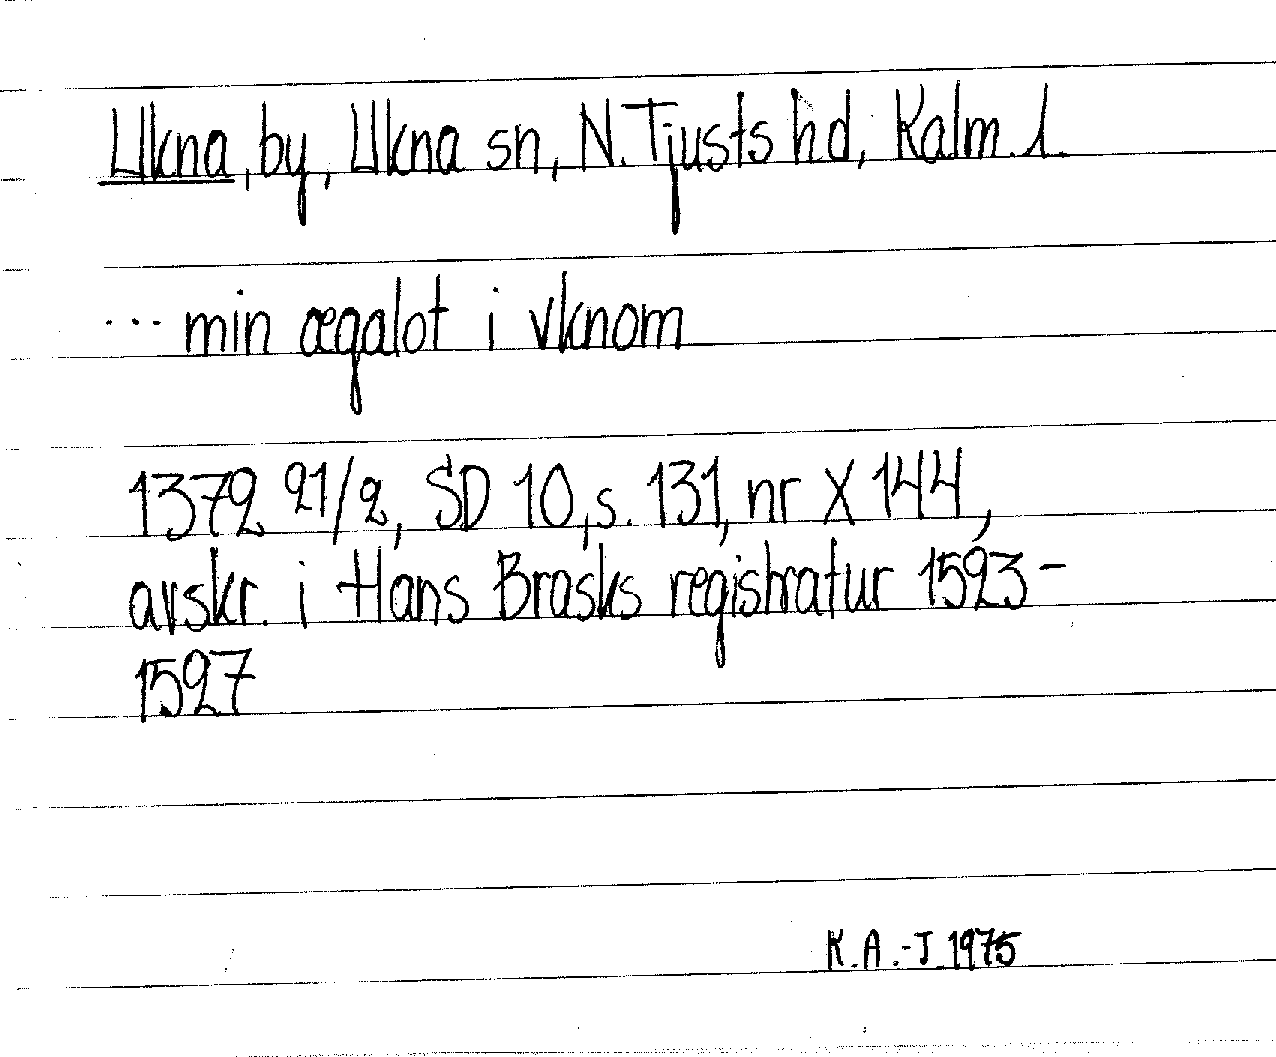 Ukna, by, Ukna sn, N. Tjusts hd, Kalm. l.
... min ægalot i vknom
1372 21/2, SD 10, s. 131, nr X 144,
avskr. i Hans Brasks registratur 1523-
1527
K.A.-J 1975